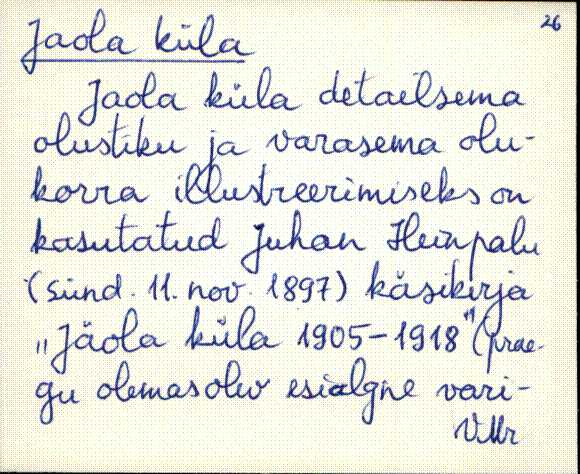 26
Jaola küla
Jaola küla detailsema
olustiku ja varasema olu-
korra illustreerimiseks on
kasutatud Juhan Heinpalu
(sünd. 11. nov. 1897) käsikirja
„Jäola küla 1905-1918" (prae-
gu olemasolev esialgne vari-
VMr